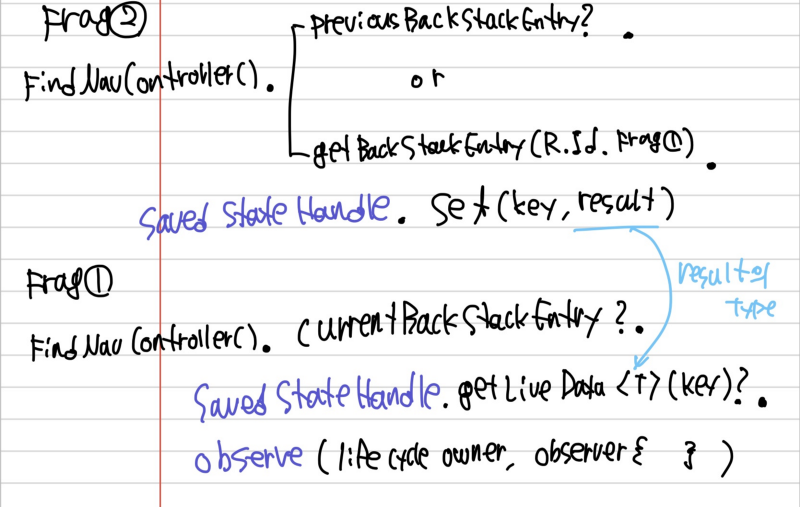 Frag②
previousBackStackEntry?.
FindNavController().
or
getBackStackEntry(R.Id.Frag①).
Saved StateHandle. Set(key, result)
Frag①
result의
type
FindNavController(). CurrentBackStackEntry?.
Saved StateHandle.getLiveData<T>(key)?.
observe (lifecycle owner, observer{ })